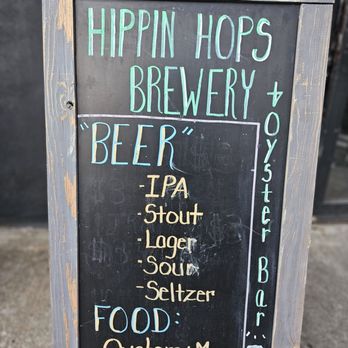 HIPPIN HOPS
BREWERY
+ Oyster Bar
"BEER"
-IPA
-Stout
-Lager
-Sour
-Seltzer
FOOD: